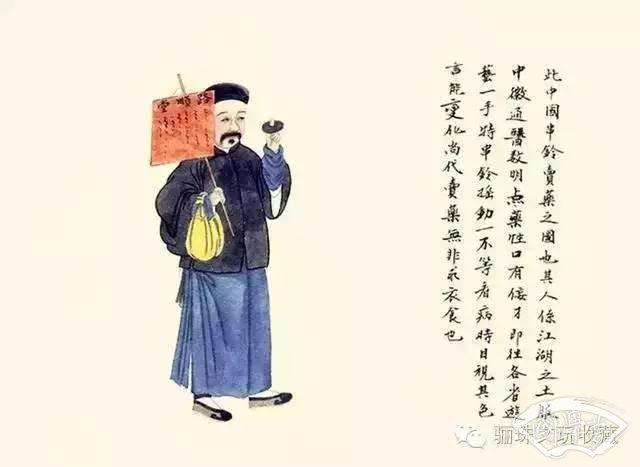 此中國串鈴賣藥之圖也其人係江湖之士脈
中微通醫数明点藥性口有佞才即往各省遊
藝一手持串鈴摇動一不等看病時目視其色
言能變化尚代賣藥無非求衣食也
路順堂
骊珠文玩收藏